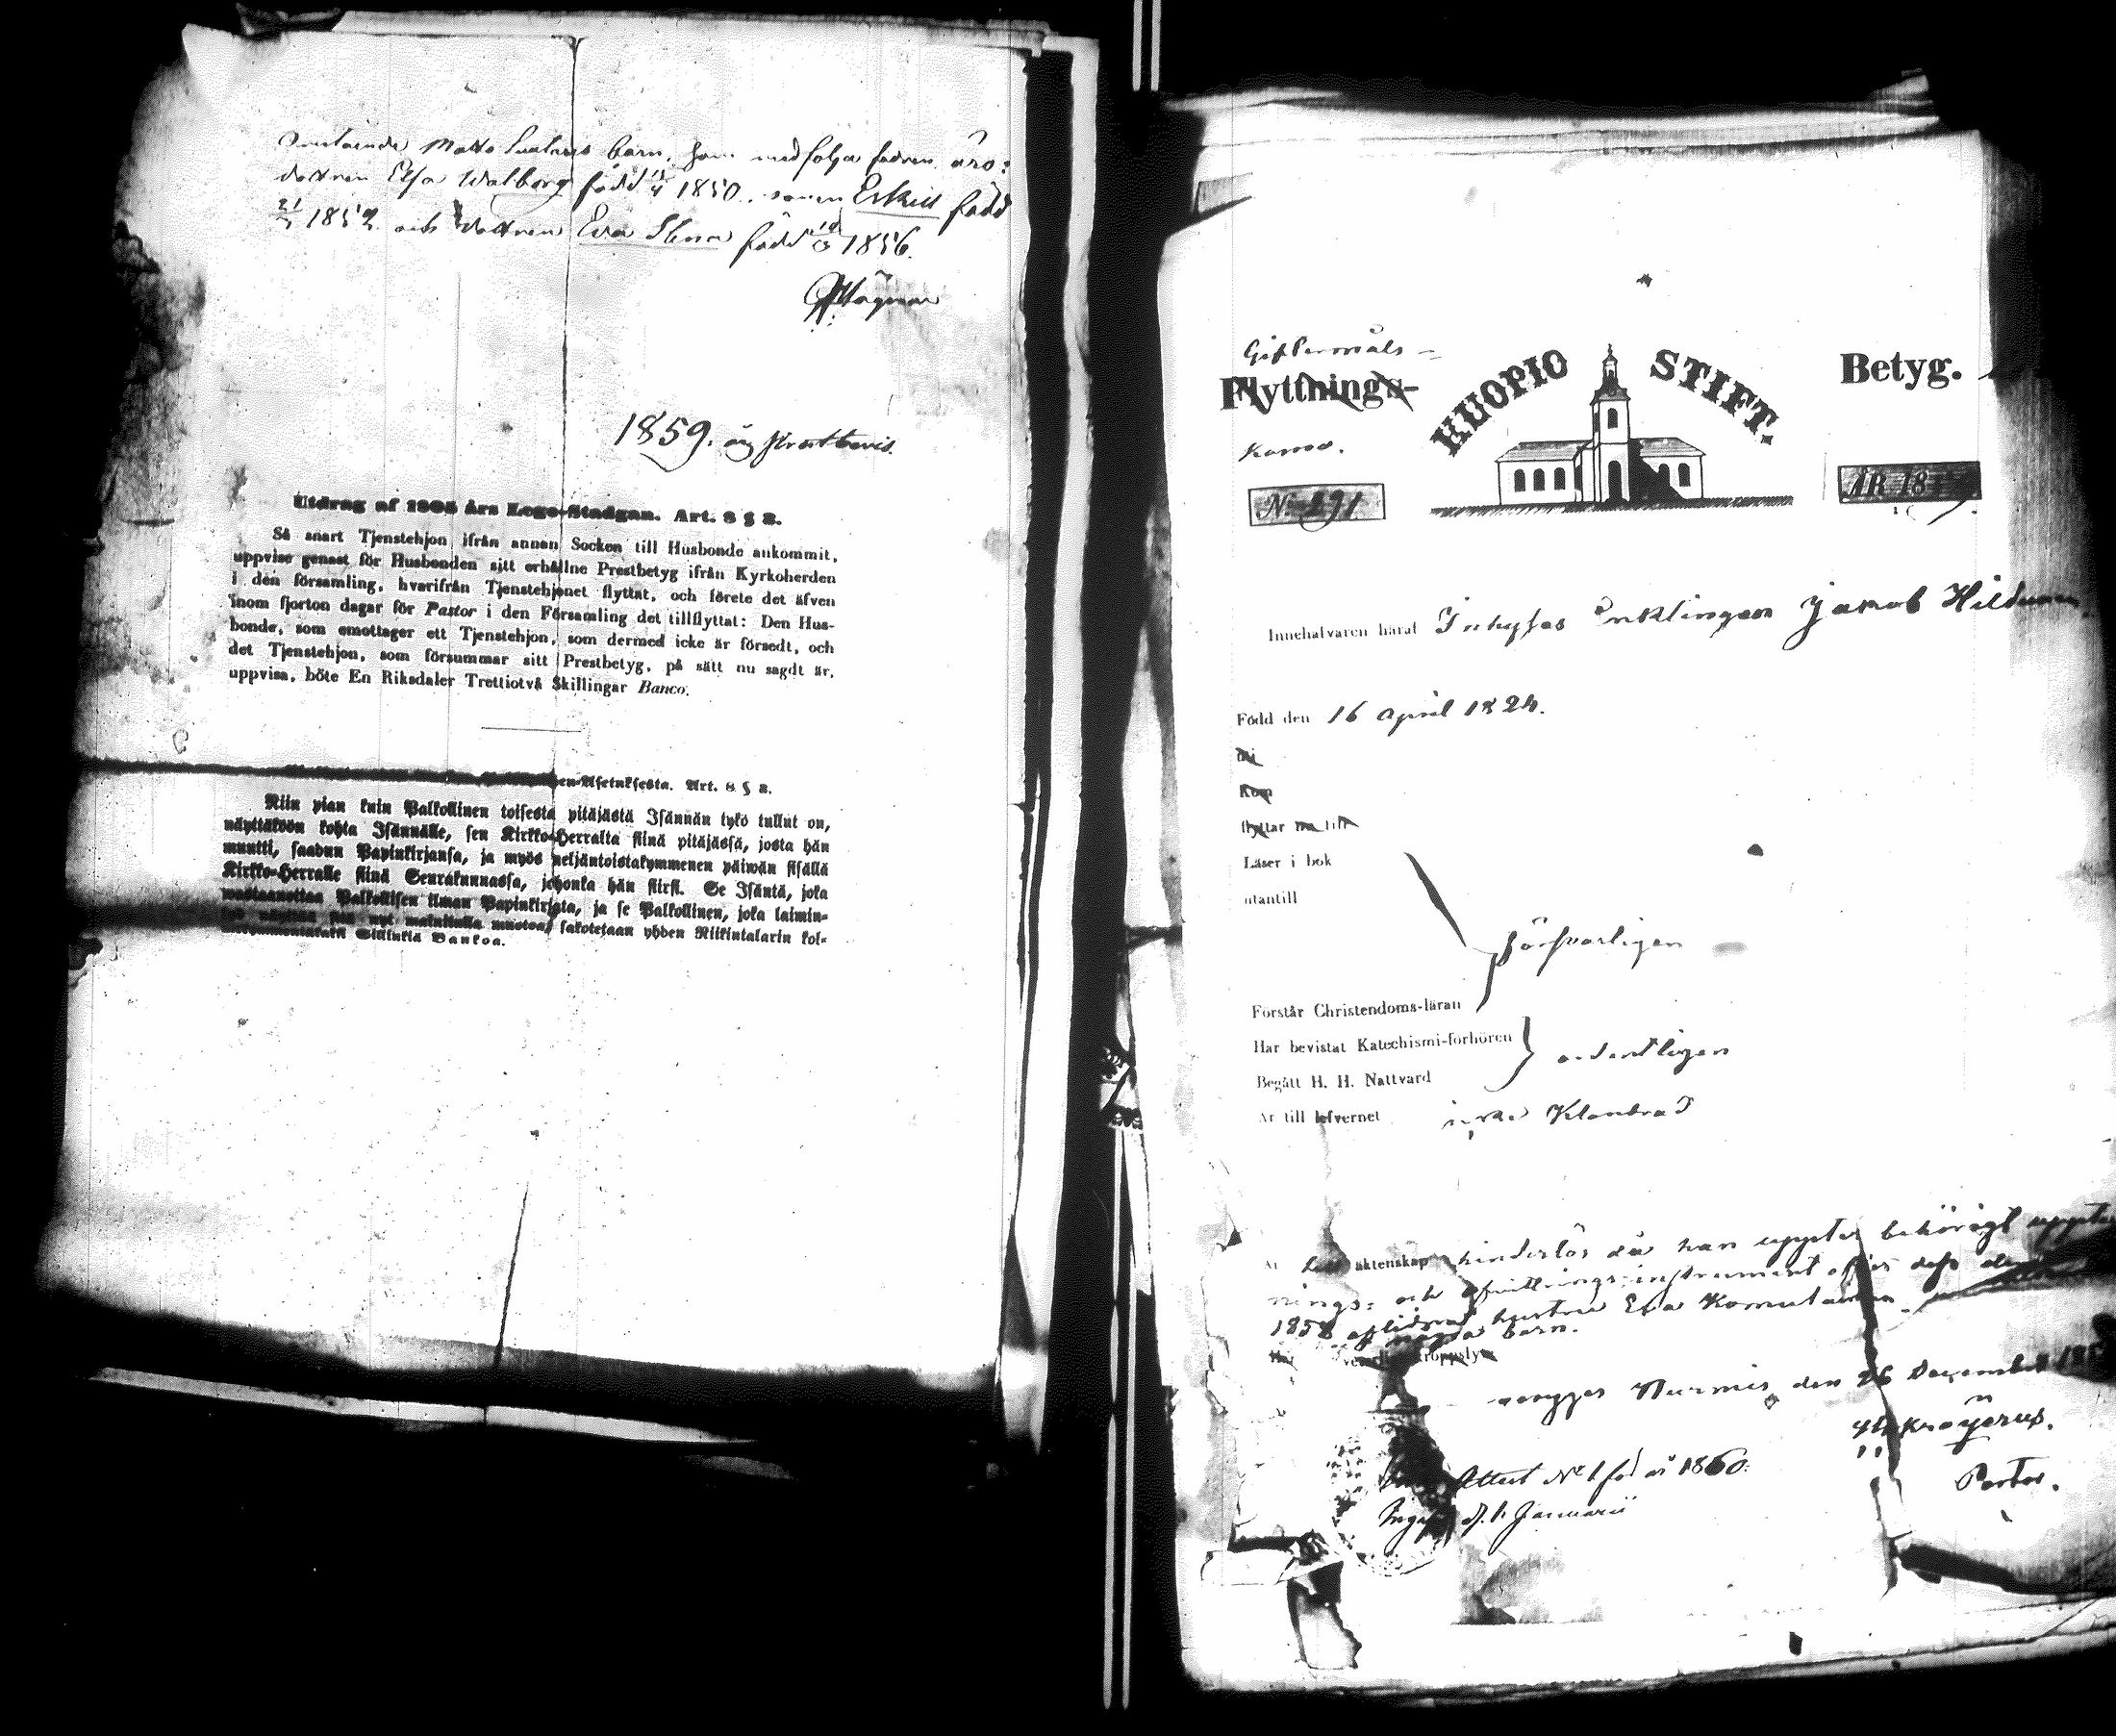 barn, som medfölja fadren äro:
dottren Elsa Walborg född 1850, sonen Eskill född
185 och dottren Eva Stina född 1856.
1859.
Utdrag af 1805 års Lego-Stadgan. Art. 8 § 2.
Så snart Tjenstehjon ifrån annan Socken till Husbonde ankommit,
uppvise genast för Husbonden sitt erhållne Prestbetyg ifrån Kyrkoherden
i den församling, hvarifrån Tjenstehjonet flyttat, och förete det äfven
inom fjorton dagar för Pastor i den Församling det tillflyttat: Den Hus-
bonde, som emottager ett Tjenstehjon, som dermed icke är försedt, och
det Tjenstehjon, som försummar sitt Prestbetyg, på sätt nu sagdt är,
uppvisa, böte En Riksdaler Trettiotvå Skillingar Banco.
en-Asetuksesta. Art. 8 § 2.
Niin pian kuin Palkollinen toisesta pitäjästä Isännän tykö tullut on,
näyttäköön kohta Isännälle, sen Kirkko-Herralta siinä pitäjässä, josta hän
muutti, saadun Papinkirjansa, ja myös neljäntoistakymmenen päiwän sisällä
Kirkko-Herralle siinä Seurakunnassa, johonka hän siirsi. Se Isäntä, joka
wastaanottaa Palkollisen ilman Papinkirjata, ja se Palkollinen, joka laimin-
nyt mainitulla muotoa, sakotetaan yhden Riikintalarin kol-
Sillinkiä Bankoa.
Giftermåls-
Flyttnings-
KUOPIO STIFT.
Betyg.
No 291
ÅR 18
Innehafvaren häraf Inhyses Enklingen Jakob Hildunen
Född den 16 April 1824.
i
Kom
flyttar nu till
Läser i bok
utantill
försvarligen
Förstår Christendoms-läran
Har bevistat Katechismi-förhören
ordentligen
Begått H. H. Nattvard
Är till lefvernet icke Klandrad
Är till äktenskap hinderlös då han uppter behörigt
nings- och afvittrings-instrument efter dess
1858 aflidna hustru Eva
barn.
kroppslyte
Nurmis den 26 December
Pastor.
Attest No 1 för år 1860.
d. 1 Januarii